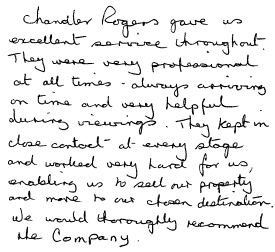 Chandler Rogers gave us
excellent service throughout.
They were very professional
at all times - always arriving
on time and very helpful
during viewings. They kept in
close contact at every stage
and worked very hard for us,
enabling us to sell our property
and move to our chosen destination.
We would thoroughly recommend
the Company.